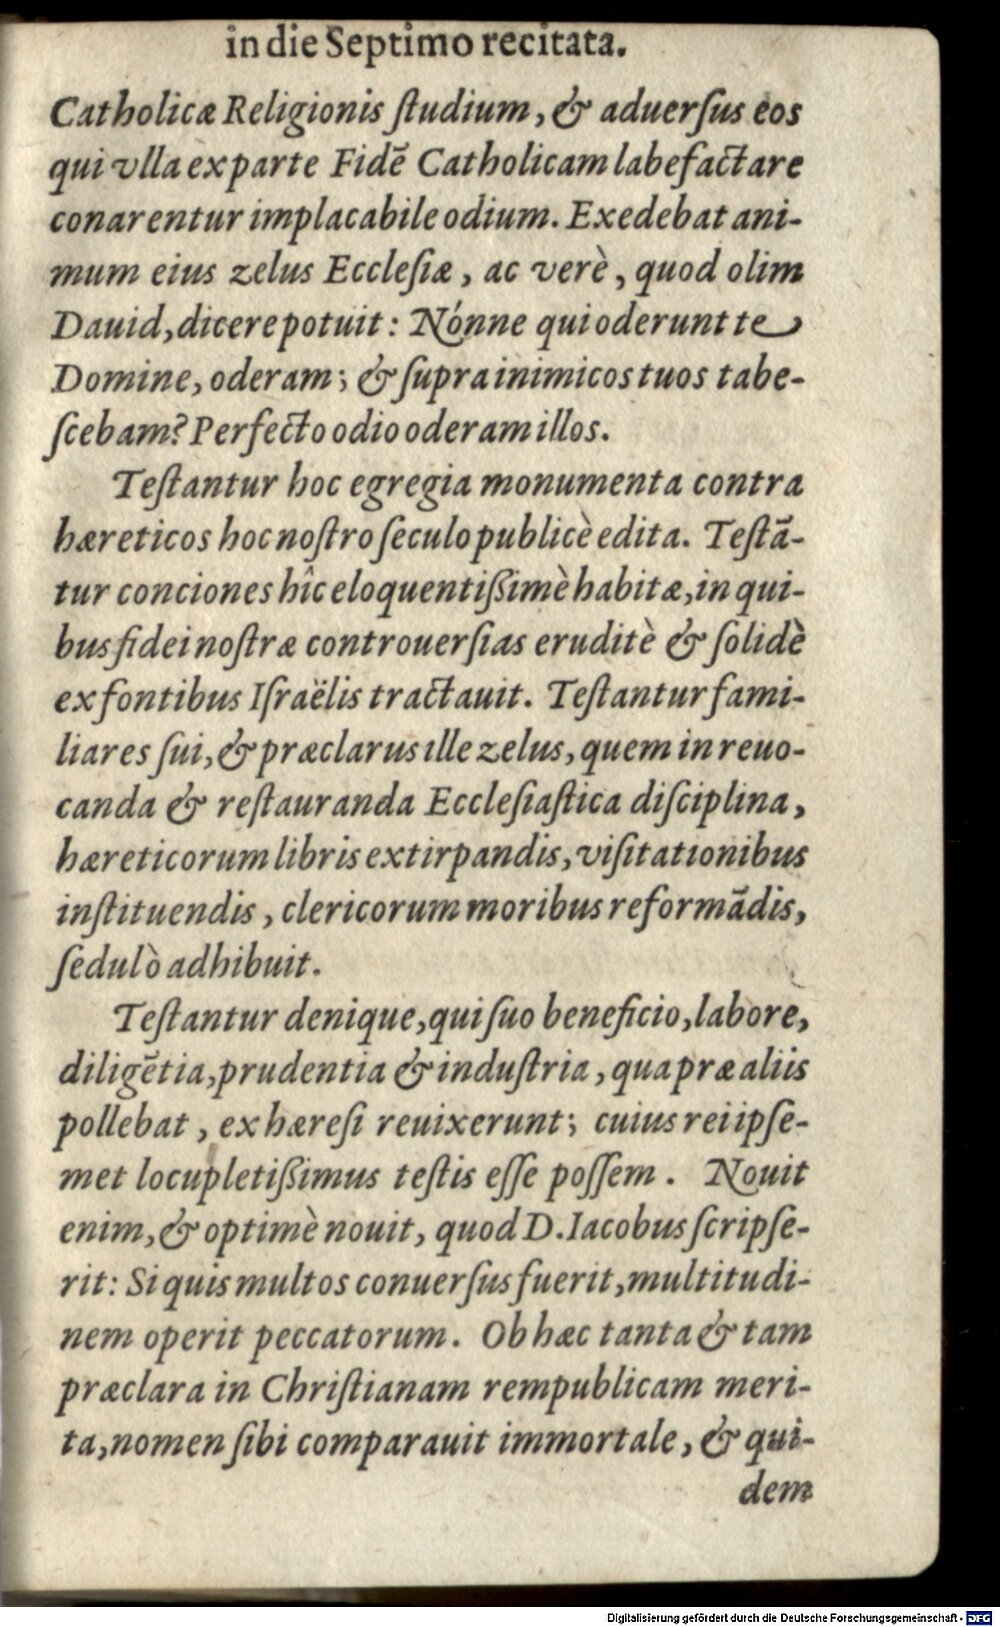 in die Septimo recitata.
Catholicæ Religionis ſtudium, & aduerſus eos
qui vlla ex parte Fidē Catholicam labefactare
conarentur implacabile odium. Exedebat ani-
mum eius zelus Eccleſiæ, ac verè, quod olim
Dauid, dicere potuit: Nónne qui oderunt te
Domine, oderam; & ſupra inimicos tuos tabe-
ſcebam? Perfecto odio oderam illos.
Teſtantur hoc egregia monumenta contra
hæreticos hoc noſtro ſeculo publicè edita. Teſtā-
tur conciones hîc eloquentißimè habitæ, in qui-
bus fidei noſtræ controuerſias eruditè & ſolidè
ex fontibus Iſraëlis tractauit. Teſtantur fami-
liares ſui, & præclarus ille zelus, quem in reuo-
canda & reſtauranda Eccleſiaſtica diſciplina,
hæreticorum libris extirpandis, viſitationibus
inſtituendis, clericorum moribus reformādis,
ſedulò adhibuit.
Teſtantur denique, qui ſuo beneficio, labore,
diligētia, prudentia & induſtria, qua præ aliis
pollebat, ex hæreſi reuixerunt; cuius rei ipſe-
met locupletißimus teſtis eſſe poſſem. Nouit
enim, & optimè nouit, quod D. Iacobus ſcripſe-
rit: Si quis multos conuerſus fuerit, multitudi-
nem operit peccatorum. Ob hæc tanta & tam
præclara in Chriſtianam rempublicam meri-
ta, nomen ſibi comparauit immortale, & qui-
dem
Digitalisierung gefördert durch die Deutsche Forschungsgemeinschaft - DFG